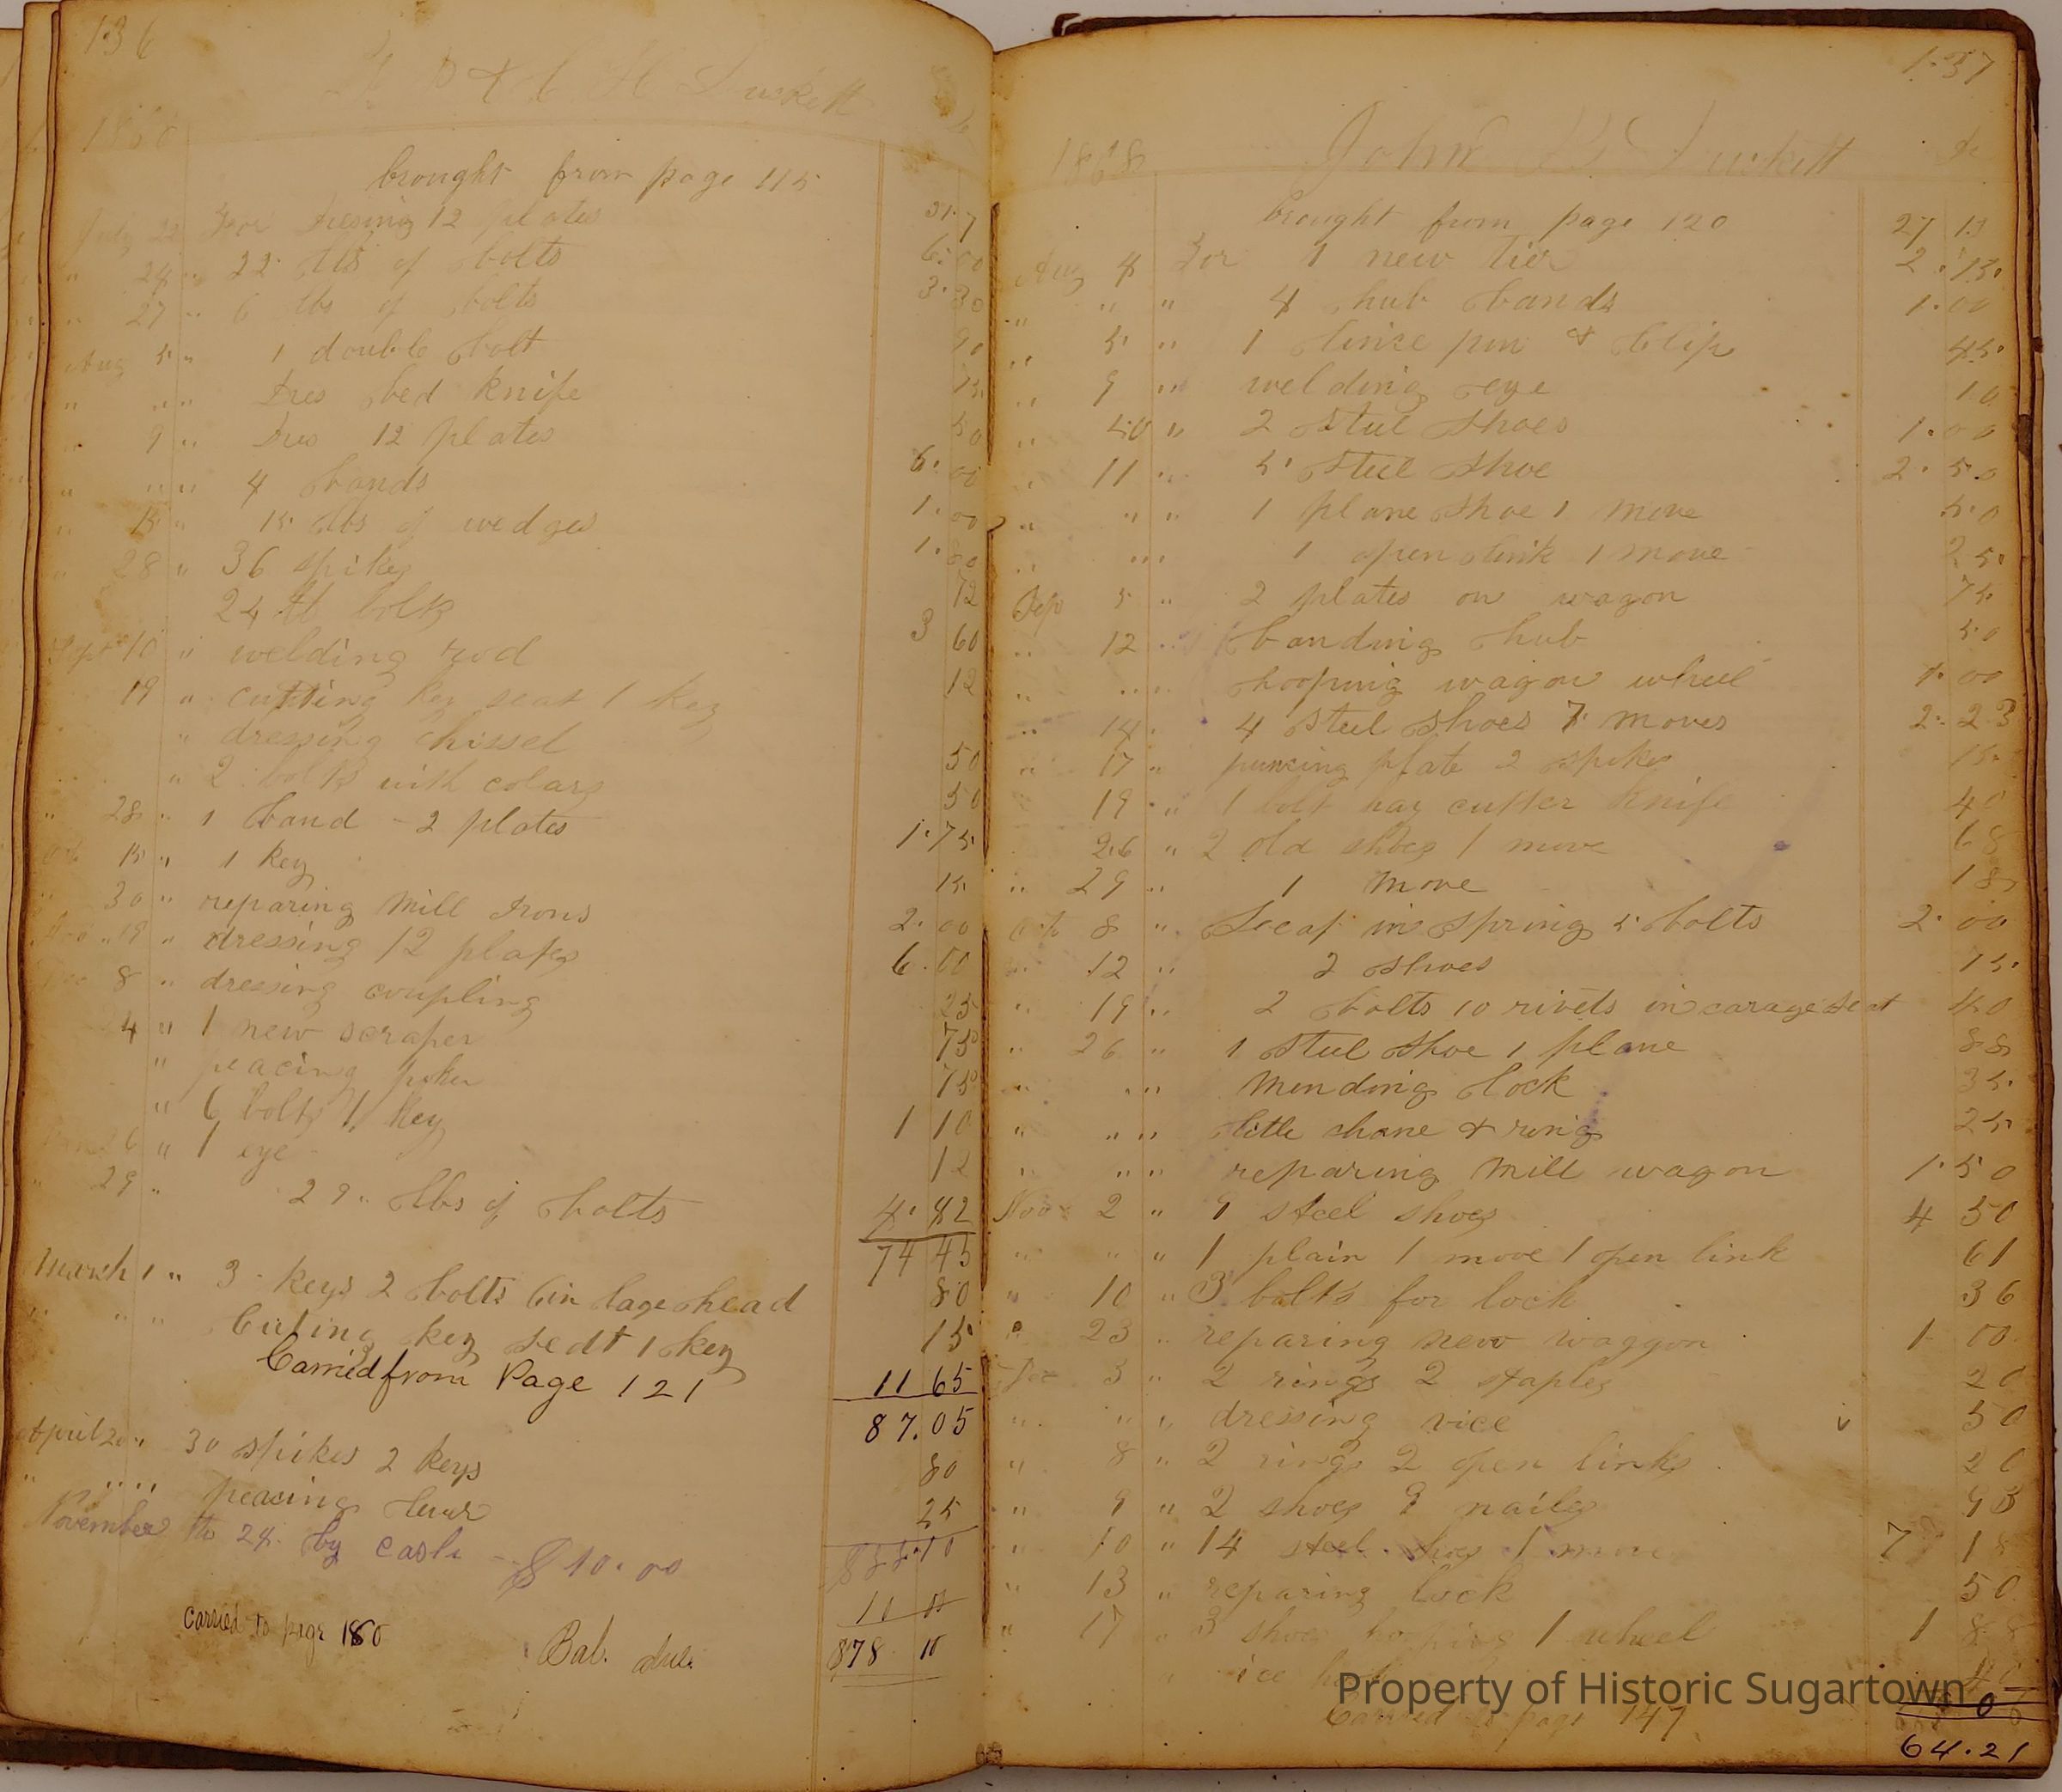 136
H. Luckett
brought from page 115
July 22 For dressing 12 plates 6.00
" 24 " 22 lbs of bolts 3.30
" 27 " 6 lbs of bolts 90
Aug 5 " 1 double bolt
" " " dres bed knife 50
" 9 " dres 12 plates 6.00
" " " 4 bands 1.00
" 15 " 15 lbs of wedges 1.
28 " 36 spikes 72
24 lb bolts 3 60
Sept 10 " welding rod 12
19 " cutting key seat 1 key
" dressing chissel 50
" 2 bolts with colars 50
" 28 " 1 band - 2 plates 1.75
Oct 15 " 1 key 15
" 30 " reparing mill Irons 2.00
Nov 19 " dressing 12 plates 6.00
Dec 8 " dressing coupling 25
24 " 1 new scraper 75
" peacing poker 75
" 6 bolts 1 key 1 10
26 " 1 eye 12
" 29 " 29 lbs of bolts 4.82
74 45
March 1 " 3 keys 2 bolts head 80
" " " Cuting key sedt 1 key 15
Carried from Page 121 11 65
87.05
April 20 " 30 spikes 2 keys 80
" " " peacing 25
November 24 by cash $10.00
10 00
carried to page 180
Bal. due. 878 10
137
1868 John Luckett
brought from page 120 27 13
Aug 4 For 1 new tier 2.15
" " " 4 hub bands 1.00
" 5 " 1 pin & Clip 45
" 9 " welding eye 10
" 10 " 2 steel shoes 1.00
" 11 " 5 steel shoe 2.50
" " " 1 plane shoe 1 move 50
" " " 1 open link 1 move 25
Sep 5 " 2 plates on wagon 75
" 12 " banding hub 50
" " " hooping wagon wheel 1.00
" 14 4 steel shoes 7 moves 2.23
" 17 " plate 2 spikes 15
19 " 1 bolt hay cutter knife 40
26 " 2 old shoes 1 move 68
" 29 " 1 move 18
Oct 8 " in spring 5 bolts 2.00
" 12 " 2 shoes
" 19 " 2 bolts 10 rivets in carage seat 40
" 26 " 1 steel shoe 1 plane 88
" " " mending lock 35
" " " little chane & ring 25
" " " reparing mill wagon 1.50
Nov 2 " 9 steel shoes 4 50
" " " 1 plain 1 move 1 open link 61
" 10 " 3 bolts for lock 36
" 23 " reparing new waggon 1 00
Dec 3 " 2 rings 2 staples 20
" " " dressing vice 50
" 8 " 2 rings 2 open links 20
" 9 " 2 shoes 9 nailes
" 10 " 14 steel shoes 1 move 7 18
" 13 " reparing lock 50
" 17 " 3 shoes hooping 1 wheel 1 88
Carried to page 147
64.21
Property of Historic Sugartown